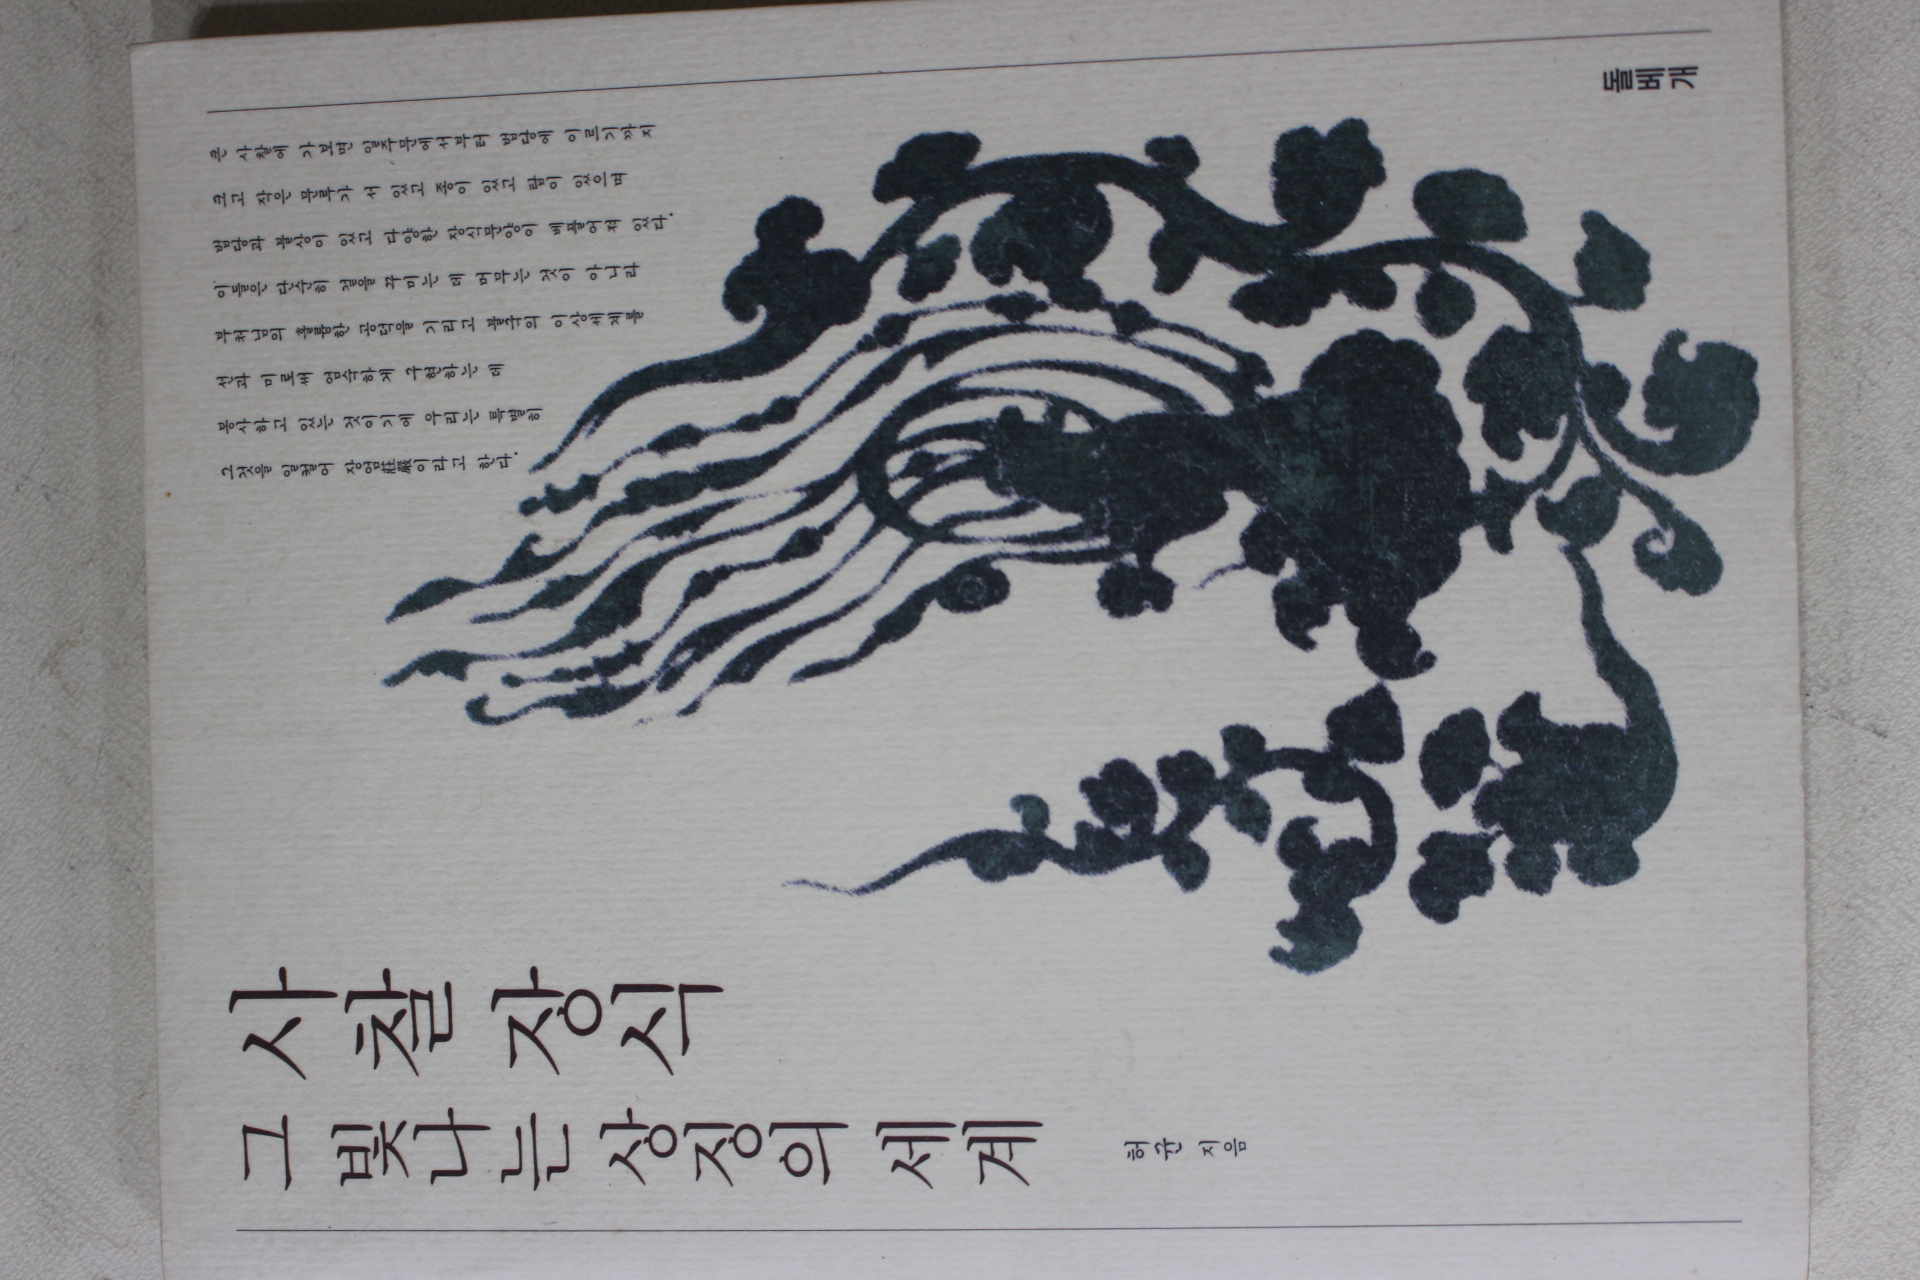 큰 사찰에 가 보면 일주문에서부터 법당에 이르기까지
크고 작은 문루가 서 있고 종이 있고 탑이 있으며
법당과 불상이 있고 다양한 장식문양이 베풀어져 있다.
이들은 단순히 절을 꾸미는 데 머무는 것이 아니라
부처님의 훌륭한 공덕을 기리고 불국의 이상세계를
선과 미로써 엄숙하게 구현하는 데
봉사하고 있는 것이기에 우리는 특별히
그것을 일컬어 장엄莊嚴이라고 한다.
사찰 장식
그 빛나는 상징의 세계
허균 지음
돌베개